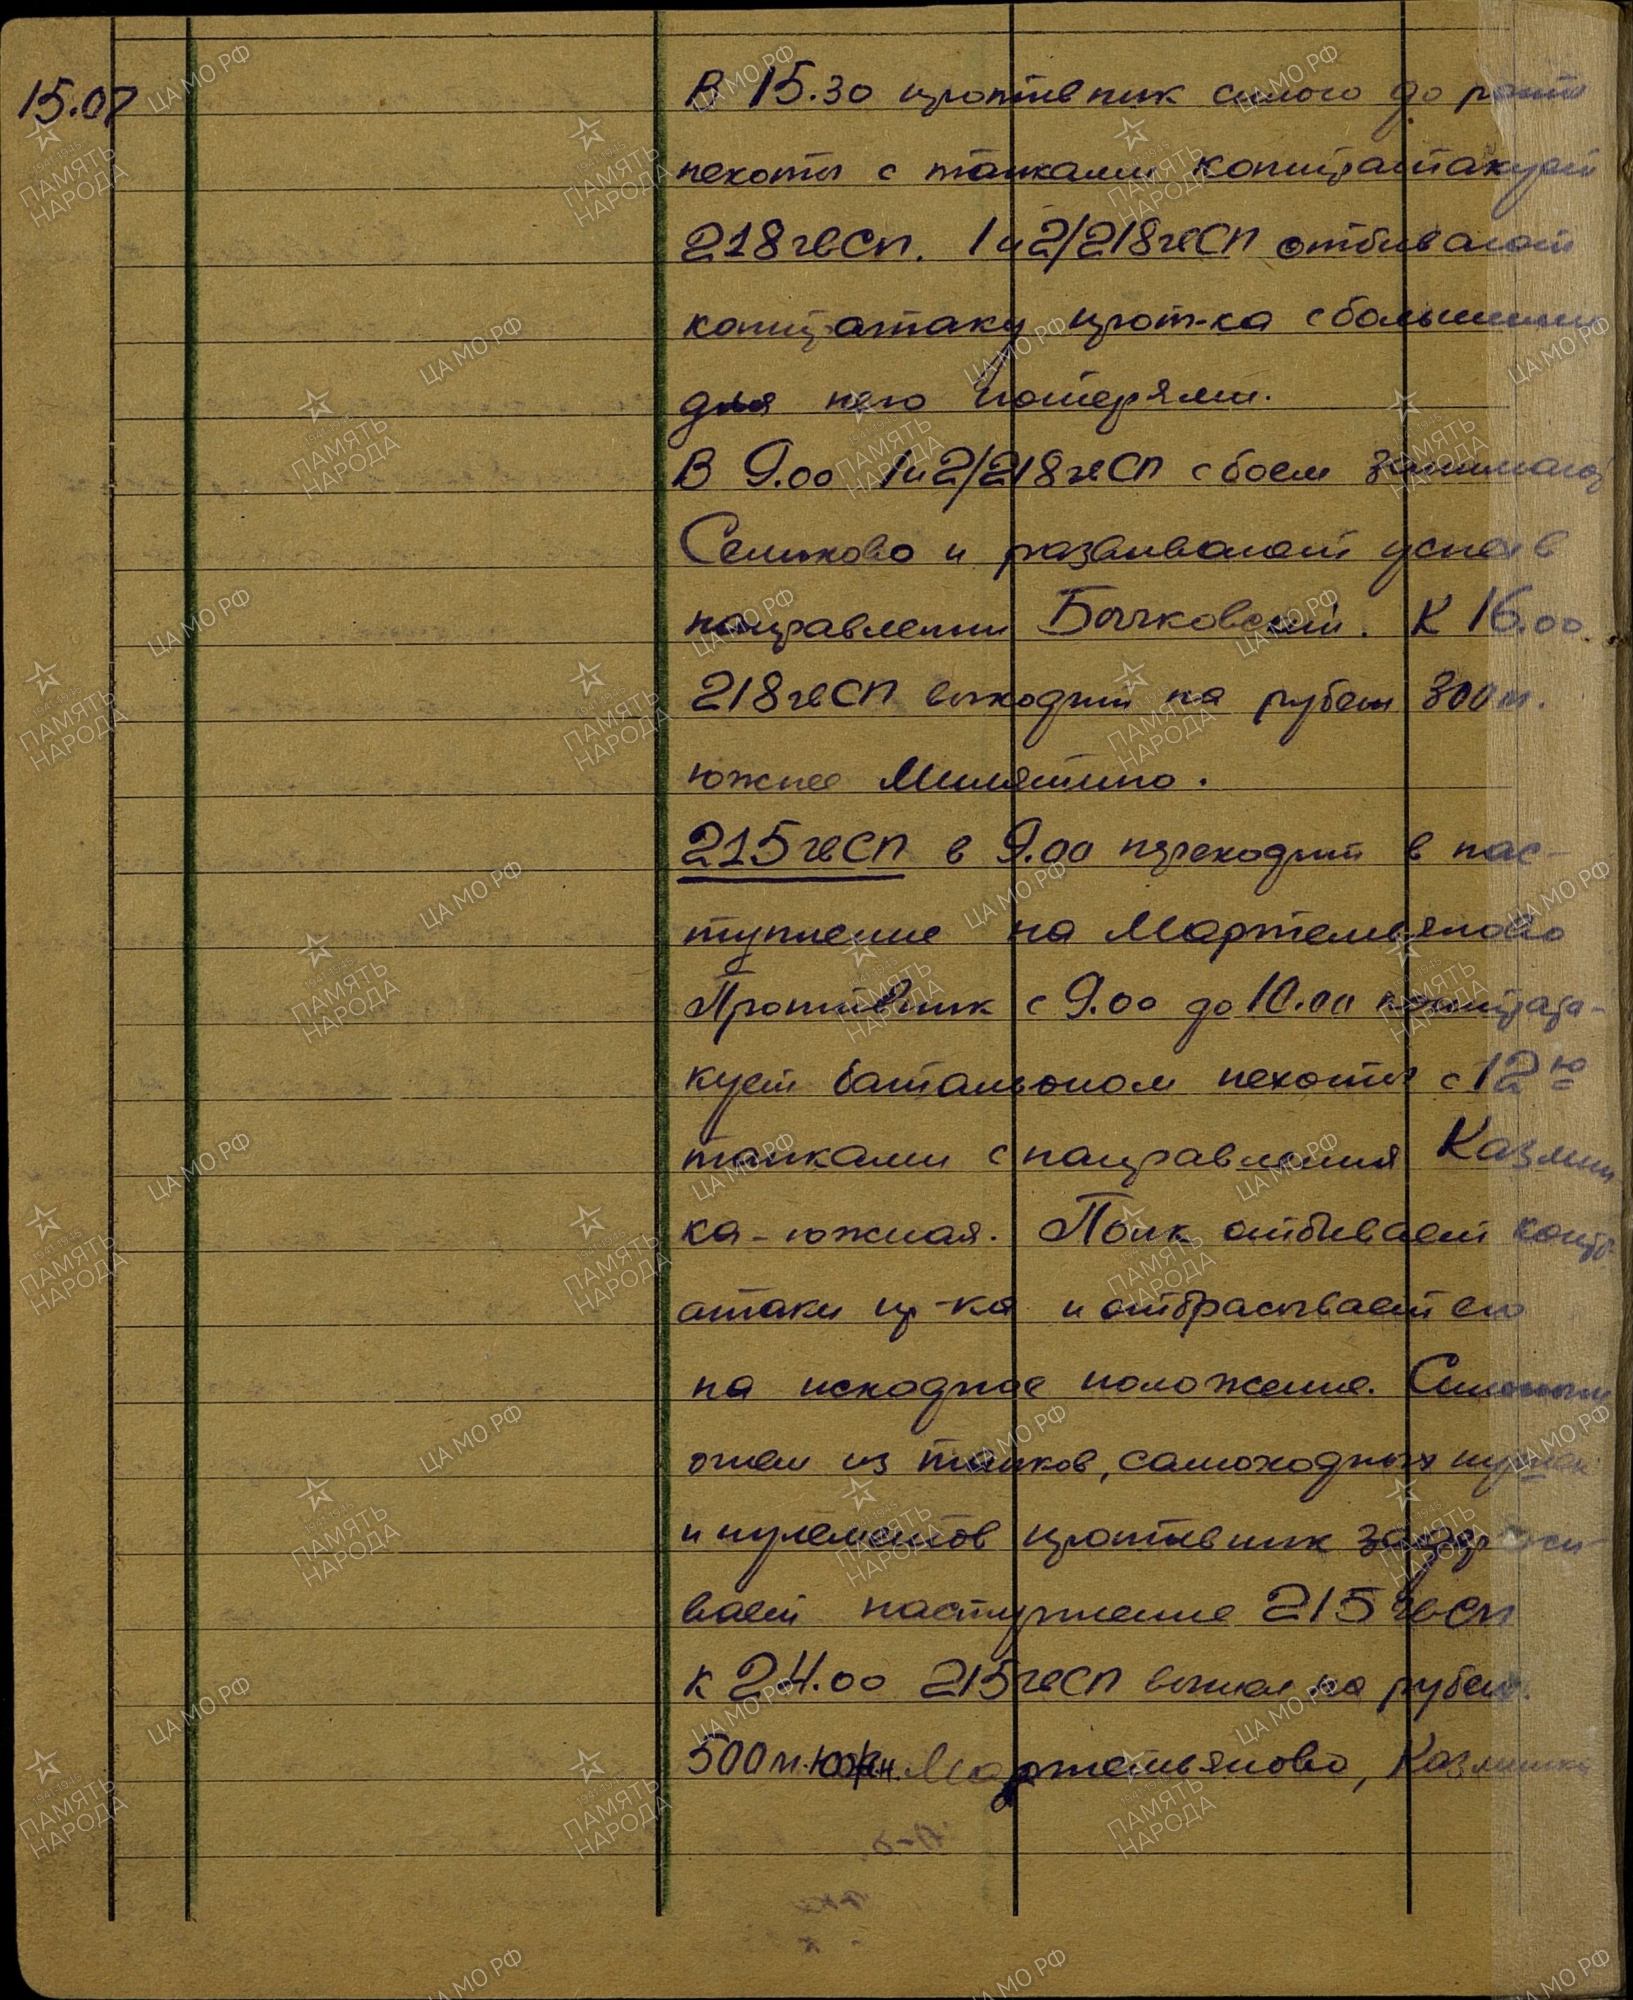 15.07
В 15.30 противник силою до роты
пехоты с танками контратакует
218 гв СП. 1 и 2/218 гв СП отбивают
контратаку прот-ка с большими
для него потерями.
В 9.00 1 и 2/218 гв СП с боем занимают
Селиково и развивают успех в
направлении Бычковский. К 16.00
218 гв СП выходит на рубеж 300 м.
южнее Милятино.
215 гв СП в 9.00 переходит в нас-
тупление на Мартемьяново
Противник с 9.00 до 10.00 контрата-
кует батальоном пехоты с 12ю
танками с направления Казмин
ка-южная. Полк отбивает контр
атаки пр-ка и отбрасывает его
на исходное положение. Сильным
огнем из танков, самоходных пушек
и пулеметов противник задержи-
вает наступление 215 гв СП
к 24.00 215 гв СП вышел на рубеж.
500 м. южн. Мартемьяново, Казминка
ЦА МО РФ
ПАМЯТЬ
НАРОДА
1941-1945